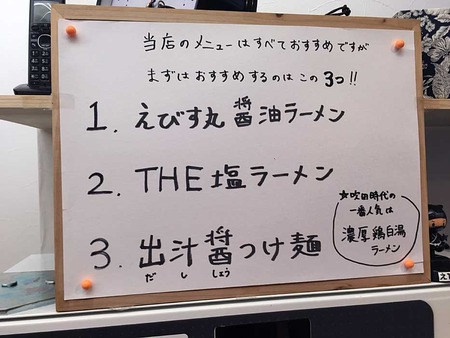 当店のメニューはすべておすすめですが
まずはおすすめするのはこの3つ!!
1. えびす丸醤油ラーメン
2. THE塩ラーメン
3. 出汁醤つけ麺
だししょう
★吹田時代の
一番人気は
濃厚鶏白湯
ラーメン